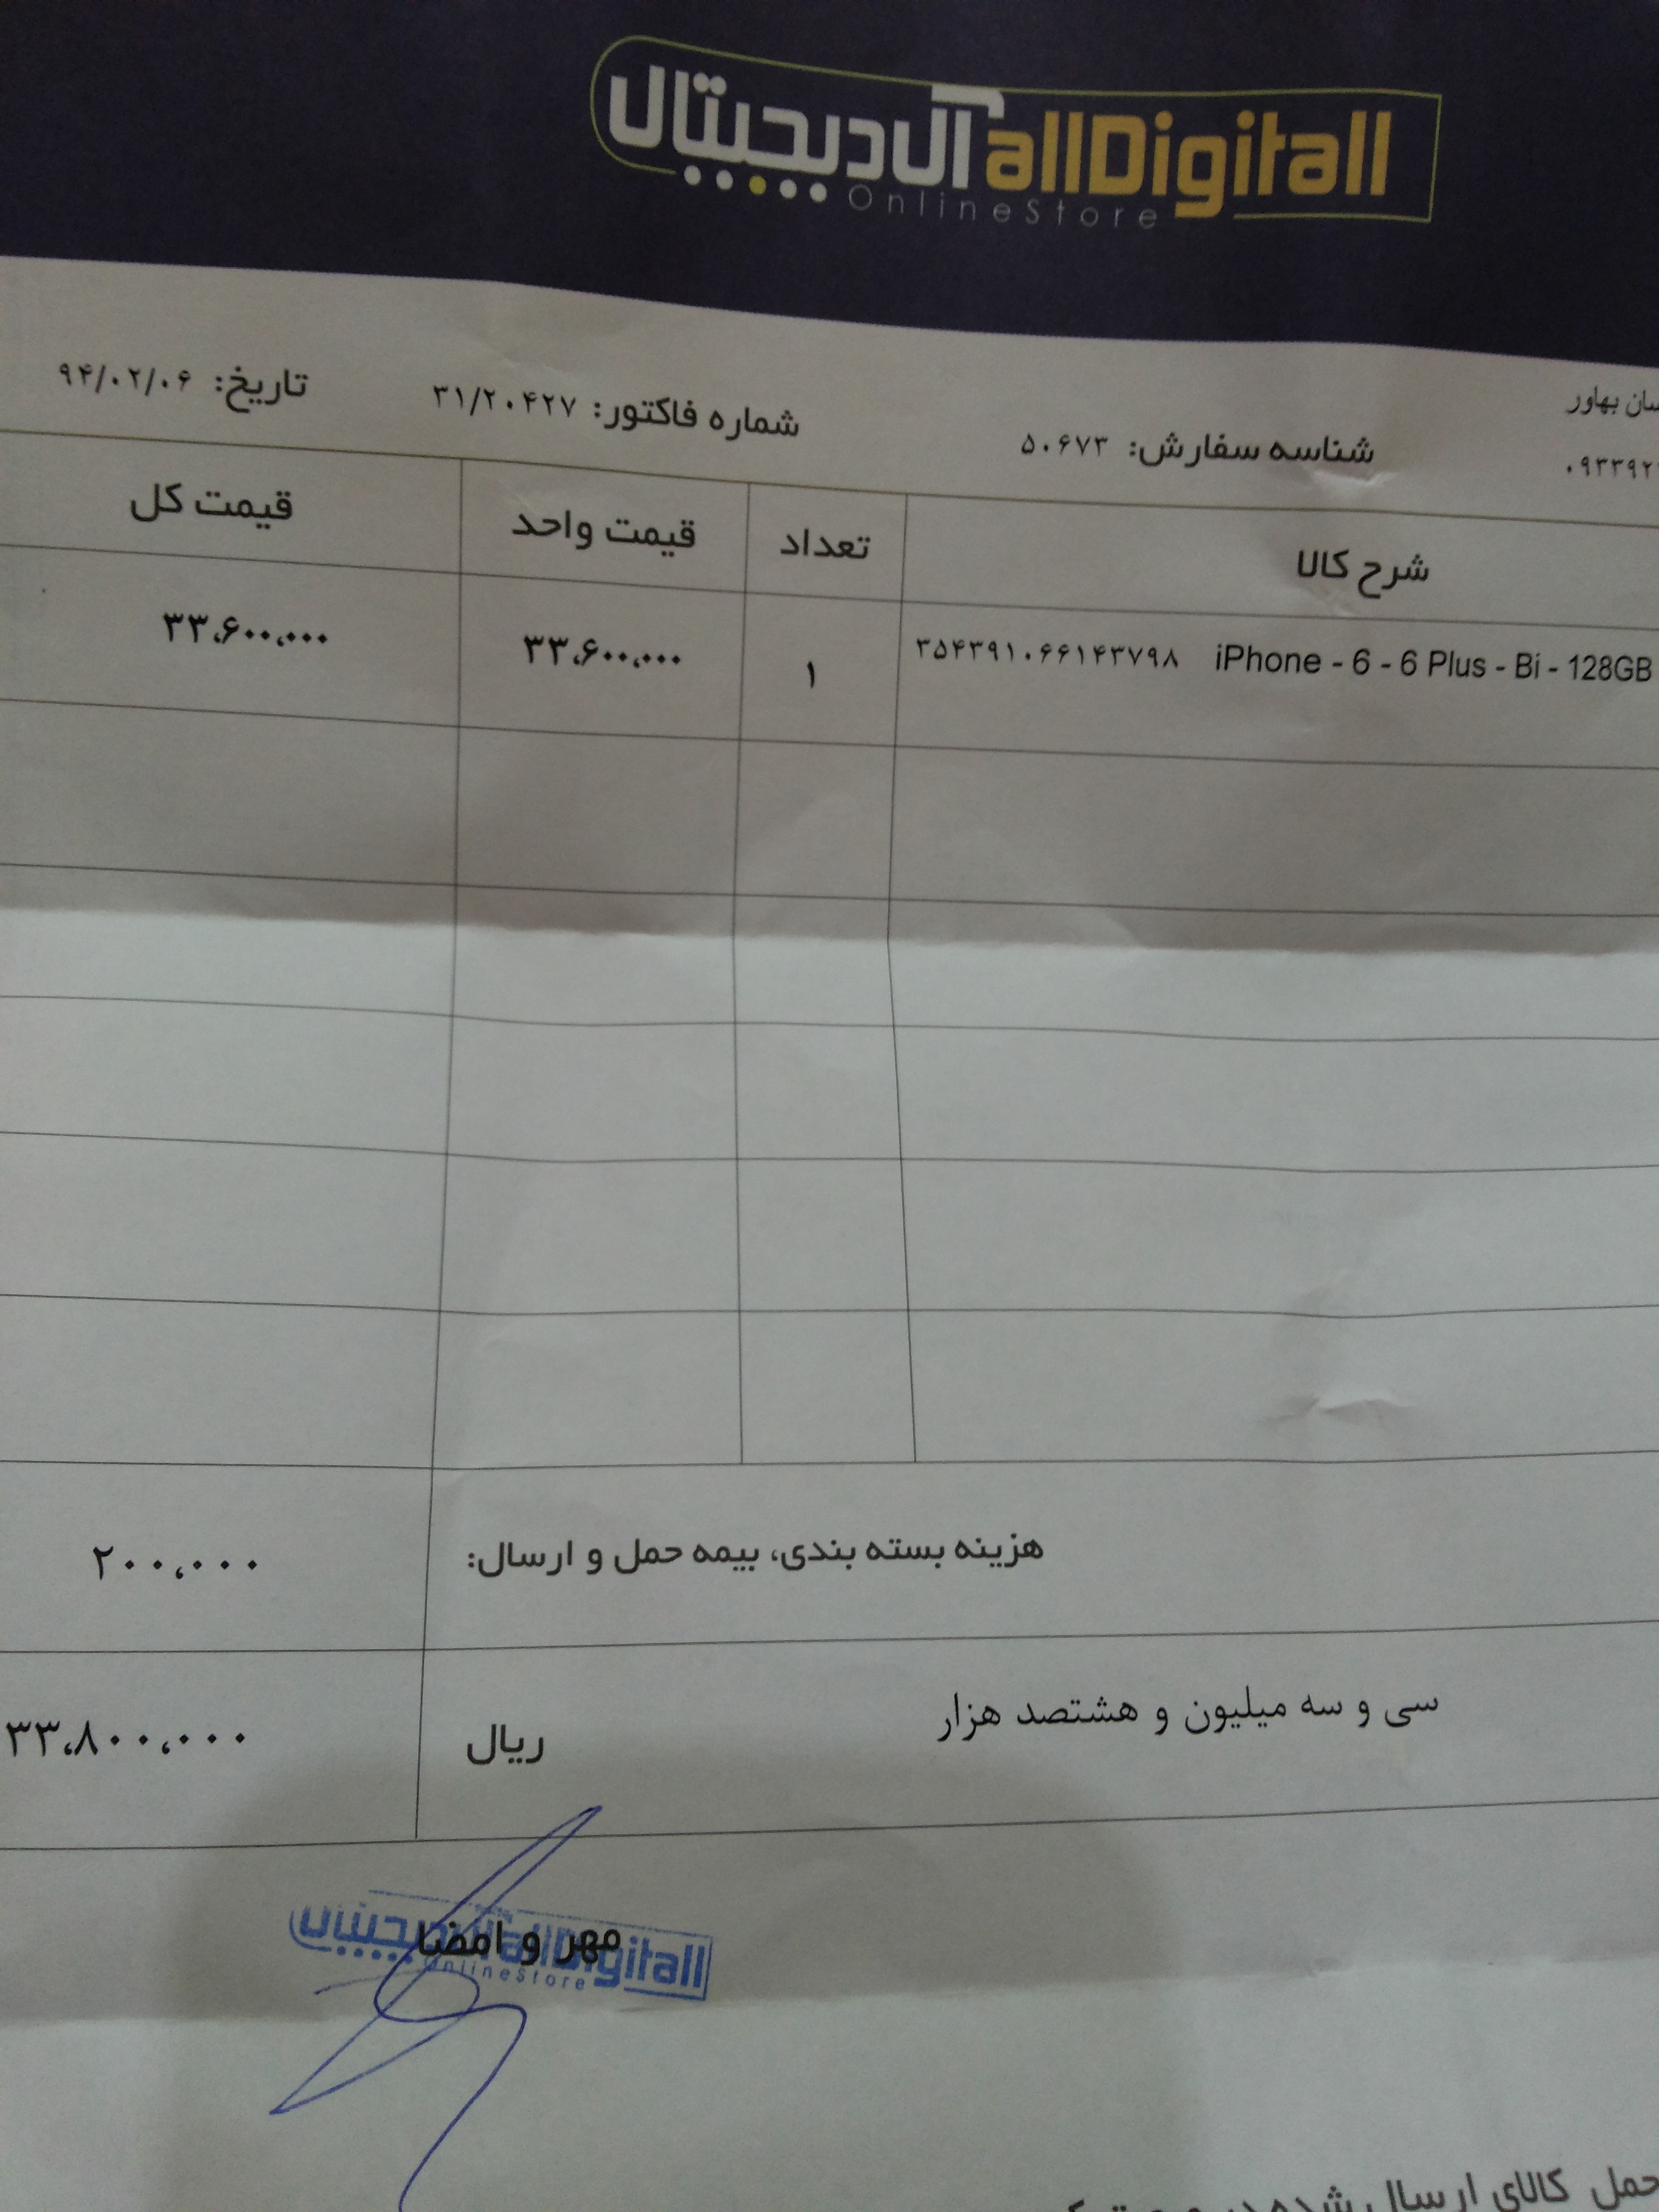 آل دیجیتال allDigitall
OnlineStore
بهاور
شناسه سفارش: ۵۰۶۷۳ شماره فاکتور: ۳۱/۲۰۴۲۷ تاریخ: ۹۴/۰۲/۰۶
شرح کالا تعداد قیمت واحد قیمت کل
iPhone - 6 - 6 Plus - Bi - 128GB ۳۵۴۳۹۱۰۶۶۱۴۳۷۹۸ ۱ ۳۳،۶۰۰،۰۰۰ ۳۳،۶۰۰،۰۰۰
هزینه بسته بندی، بیمه حمل و ارسال: ۲۰۰،۰۰۰
سی و سه میلیون و هشتصد هزار ریال ۳۳،۸۰۰،۰۰۰
مهر و امضا
آل دیجیتال allDigitall
OnlineStore
حمل کالای ارسال شده